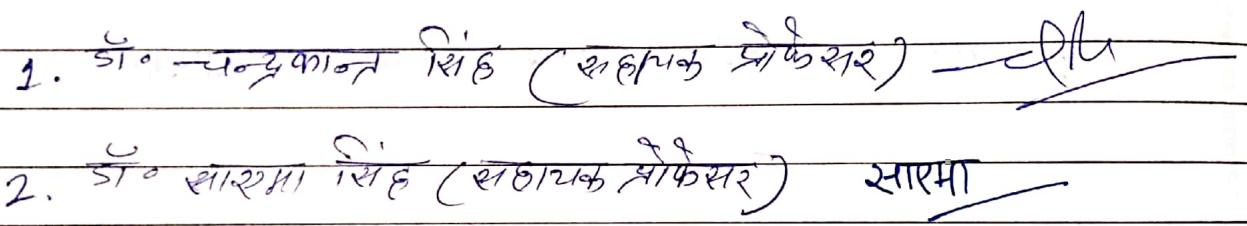 1. डॉ० चन्द्रकान्त सिंह (सहायक प्रोफेसर)
2. डॉ० सारमा सिंह (सहायक प्रोफेसर) सारमा